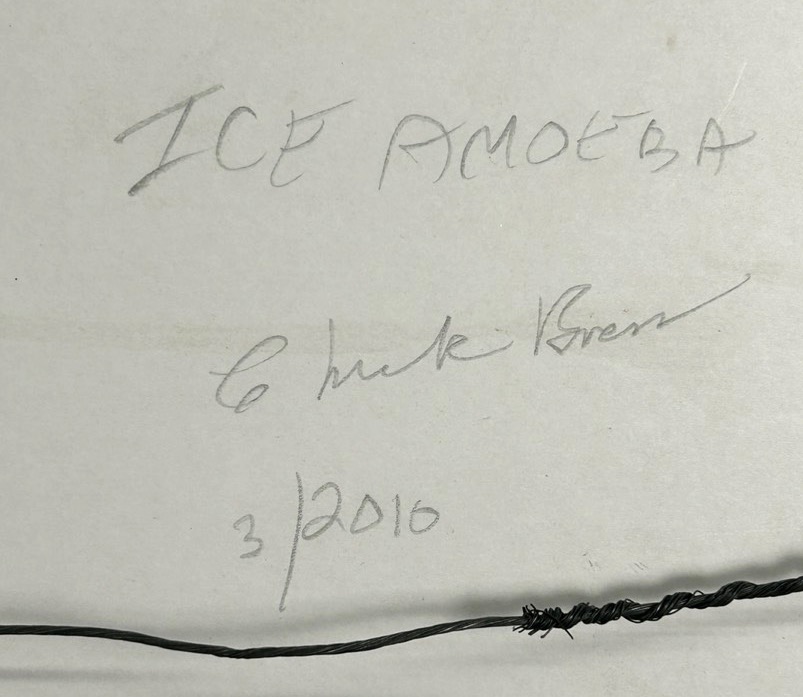 ICE AMOEBA
Chuck
3/2010